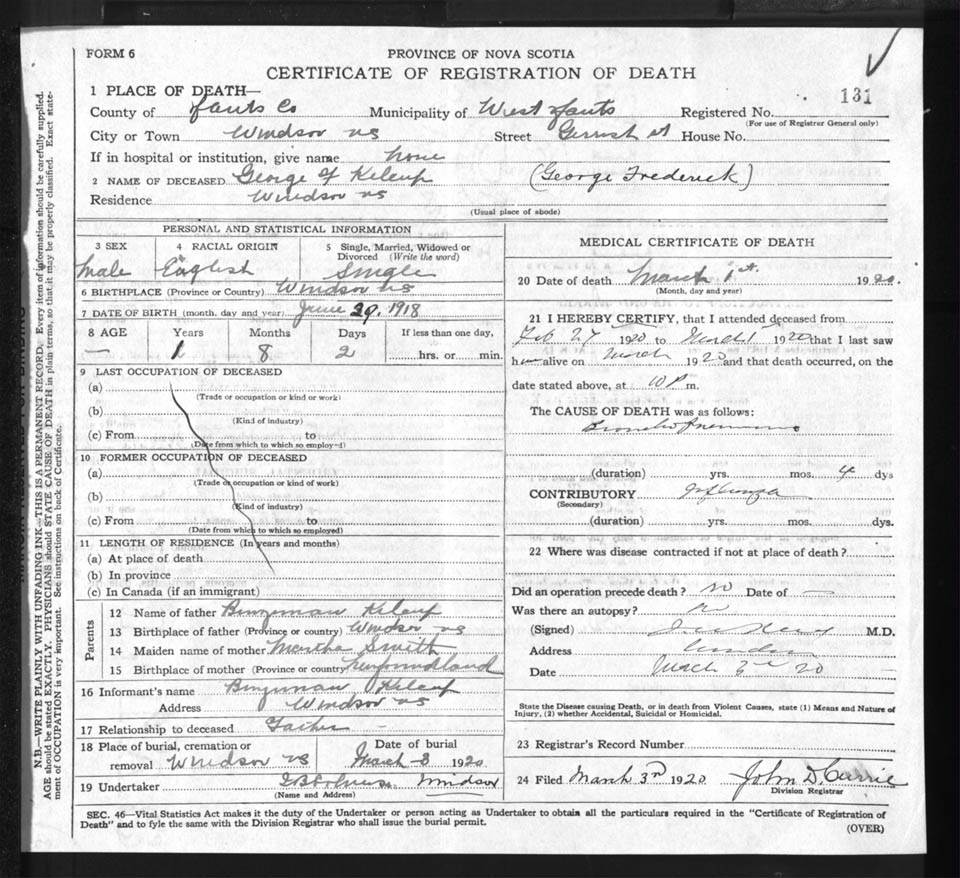 FORM 6
PROVINCE OF NOVA SCOTIA
CERTIFICATE OF REGISTRATION OF DEATH
131
1 PLACE OF DEATH—
County of Hants Co Municipality of West Hants Registered No.
(For use of Registrar General only)
City or Town Windsor NS Street Gerrish St House No.
If in hospital or institution, give name none
2 NAME OF DECEASED George F Kelcup (George Frederick)
Residence Windsor NS
(Usual place of abode)
PERSONAL AND STATISTICAL INFORMATION
3 SEX 4 RACIAL ORIGIN 5 Single, Married, Widowed or Divorced (Write the word)
Male English Single
6 BIRTHPLACE (Province or Country) Windsor NS
7 DATE OF BIRTH (month, day and year) June 29, 1918
8 AGE Years Months Days If less than one day,
— 1 8 2 hrs. or min.
9 LAST OCCUPATION OF DECEASED
(a)
(Trade or occupation or kind or work)
(b)
(Kind of industry)
(c) From to
(Date from which to which so employed)
10 FORMER OCCUPATION OF DECEASED
(a)
(Trade or occupation or kind of work)
(b)
(Kind of industry)
(c) From to
(Date from which to which so employed)
11 LENGTH OF RESIDENCE (In years and months)
(a) At place of death
(b) In province
(c) In Canada (if an immigrant)
Parents
12 Name of father Kelcup
13 Birthplace of father (Province or country) Windsor NS
14 Maiden name of mother Martha Smith
15 Birthplace of mother (Province or country) Newfoundland
16 Informant's name Kelcup
Address Windsor NS
17 Relationship to deceased Father
18 Place of burial, cremation or removal Windsor NS
Date of burial March 3 1920
19 Undertaker Windsor
(Name and Address)
MEDICAL CERTIFICATE OF DEATH
20 Date of death March 1st. 1920.
(Month, day and year)
21 I HEREBY CERTIFY, that I attended deceased from
Feb 27 1920 to March 1 1920 that I last saw
him alive on March 1920 and that death occurred, on the
date stated above, at 10 P m.
The CAUSE OF DEATH was as follows:
Broncho Pneumonia
(duration) yrs. mos. 4 dys
CONTRIBUTORY Influenza
(Secondary)
(duration) yrs. mos. dys.
22 Where was disease contracted if not at place of death?
Did an operation precede death? no Date of —
Was there an autopsy? no
(Signed) M.D.
Address Windsor
Date March 3rd 20
State the Disease causing Death, or in death from Violent Causes, state (1) Means and Nature of
Injury, (2) whether Accidental, Suicidal or Homicidal.
23 Registrar's Record Number
24 Filed March 3rd 1920 John D. Currie
Division Registrar
SEC. 46—Vital Statistics Act makes it the duty of the Undertaker or person acting as Undertaker to obtain all the particulars required in the "Certificate of Registration of
Death" and to fyle the same with the Division Registrar who shall issue the burial permit.
(OVER)
N.B.—WRITE PLAINLY WITH UNFADING INK—THIS IS A PERMANENT RECORD. Every item of information should be carefully supplied.
AGE should be stated EXACTLY. PHYSICIANS should STATE CAUSE OF DEATH in plain terms, so that it may be properly classified. Exact state-
ment of OCCUPATION is very important. See instructions on back of Certificate.